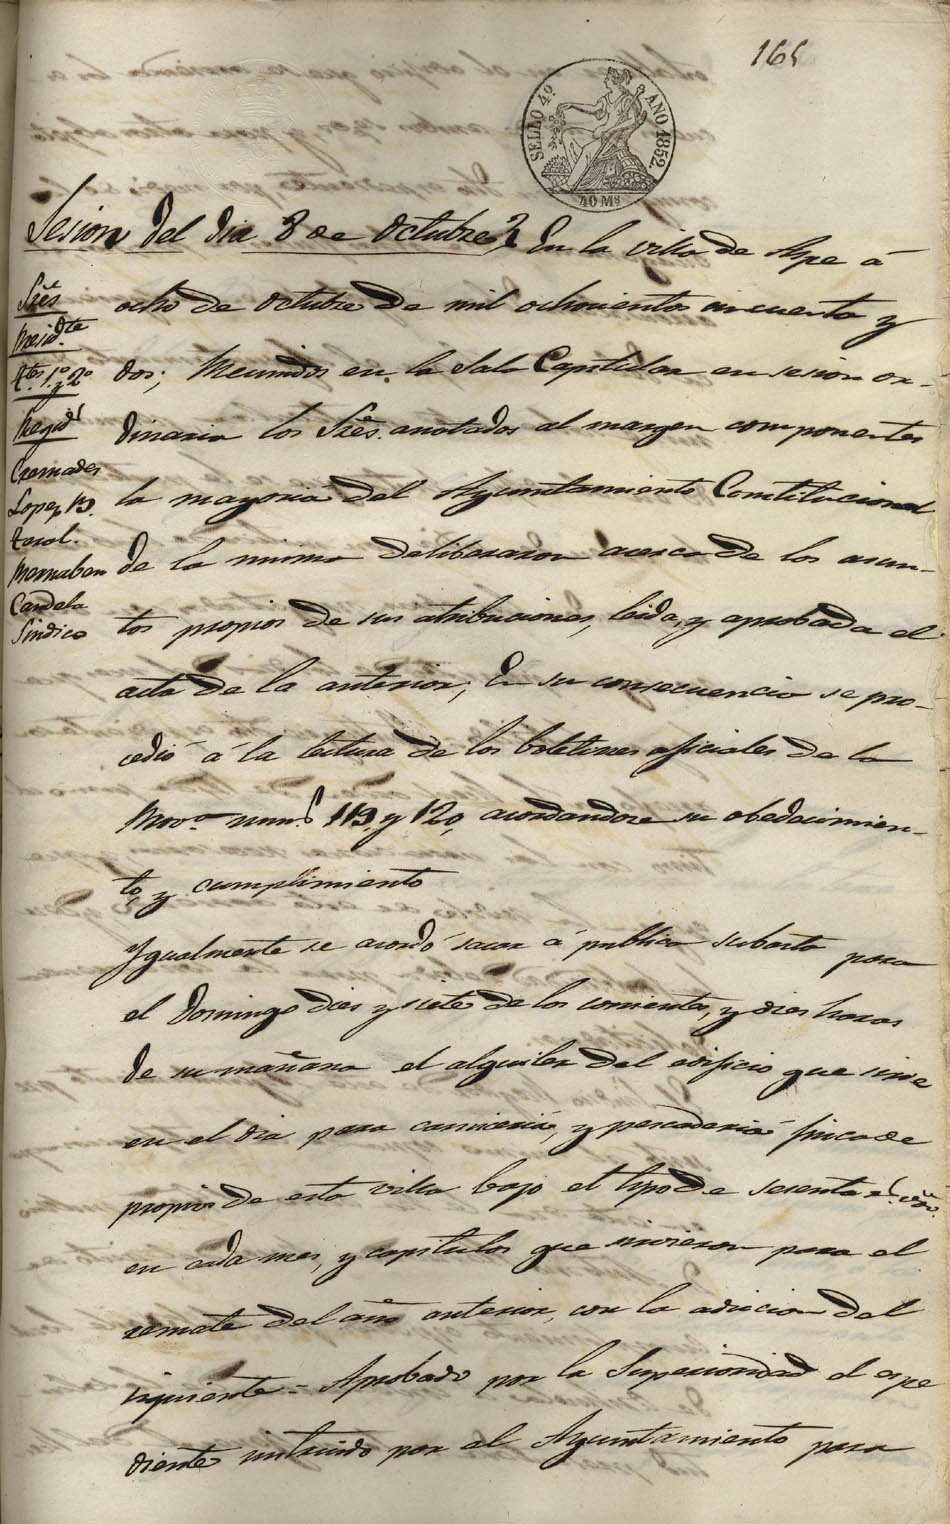 165
SELLO 4º AÑO 1852.
40 Ms
Sesion del dia 8 de Octubre } En la villa de Aspe á
ocho de Octubre de mil ochocientos cincuenta y
dos; Reunidos en la Sala Capitular en sesion or-
dinaria los Sres. anotados al margen componentes
la mayoria del Ayuntamiento Constitucional
de la misma deliberaron acerca de los asun-
tos propios de sus atribuciones, leida, y aprobada el
acta de la anterior; En su consecuencia se pro-
cedió á la lectura de los boletines oficiales de la
Prova. nums 119 y 120, acordandose su obedecimien-
to, y cumplimiento
Sres
Presidte
Ttes. 1º y 2º
Regids
Cremades
Lopez
Terol.
Mernabeu
Candela
Sindico
Ygualmente se acordó sacar á publica subasta para
el Domingo dies y siete de los corrientes, y dies horas
de su mañana el alquiler del edificio que sirve
en el dia para carniceria, y pescaderia finca de
propios de esta villa bajo el tipo de sesenta rs. von.
en cada mes, y capitulos que sirvieron para el
remate del año anterior, con la adicion del
siguiente = Aprobado por la Superioridad el espe
diente instruido por el Ayuntamiento para